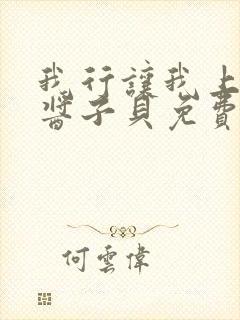 我行讓我上
醬子貝免費
何雲偉